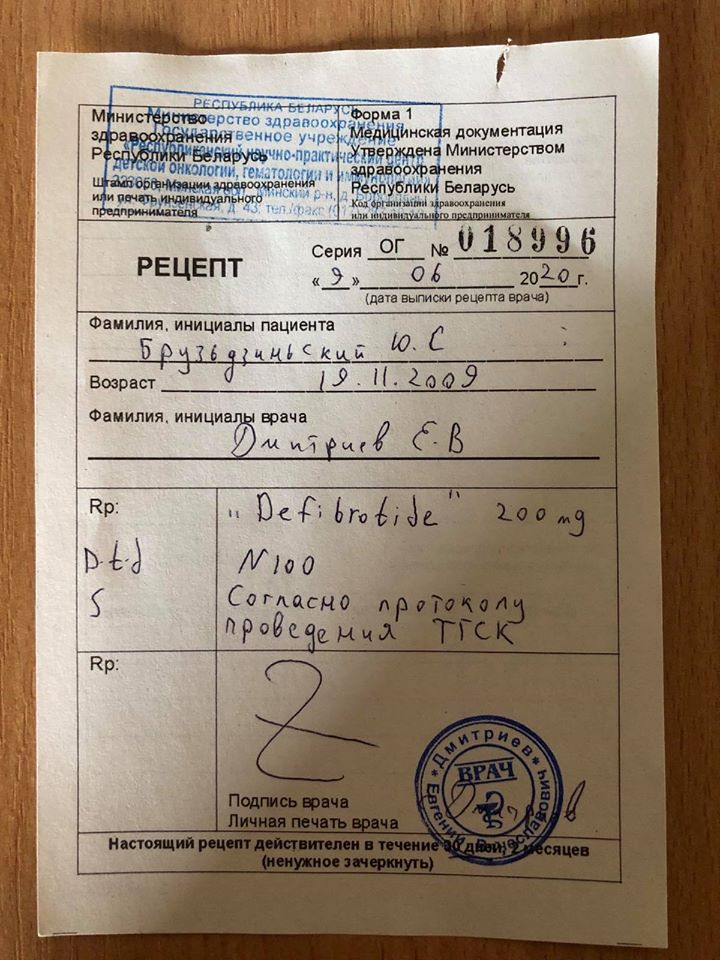 РЕСПУБЛИКА БЕЛАРУСЬ
Министерство здравоохранения
Государственное учреждение
«Республиканский научно-практический центр
детской онкологии, гематологии и иммунологии»
Министерство
здравоохранения
Республики Беларусь
Штамп организации здравоохранения
или печать индивидуального
предпринимателя
Форма 1
Медицинская документация
Утверждена Министерством
здравоохранения
Республики Беларусь
Код организации здравоохранения
или индивидуального предпринимателя
РЕЦЕПТ
Серия ОГ № 018996
«9» 06 2020г.
(дата выписки рецепта врача)
Фамилия, инициалы пациента
Брузьдзиньский Ю.С
Возраст 19.11.2009
Фамилия, инициалы врача
Дмитриев Е.В
Rp: „Defibrotide" 200 mg
D.t.d N100
S Согласно протоколу
проведения ТГСК
Rp:
Подпись врача
Личная печать врача
*Дмитриев*
ВРАЧ
Евгений Вячеславович
Настоящий рецепт действителен в течение 30 дней, 2 месяцев
(ненужное зачеркнуть)